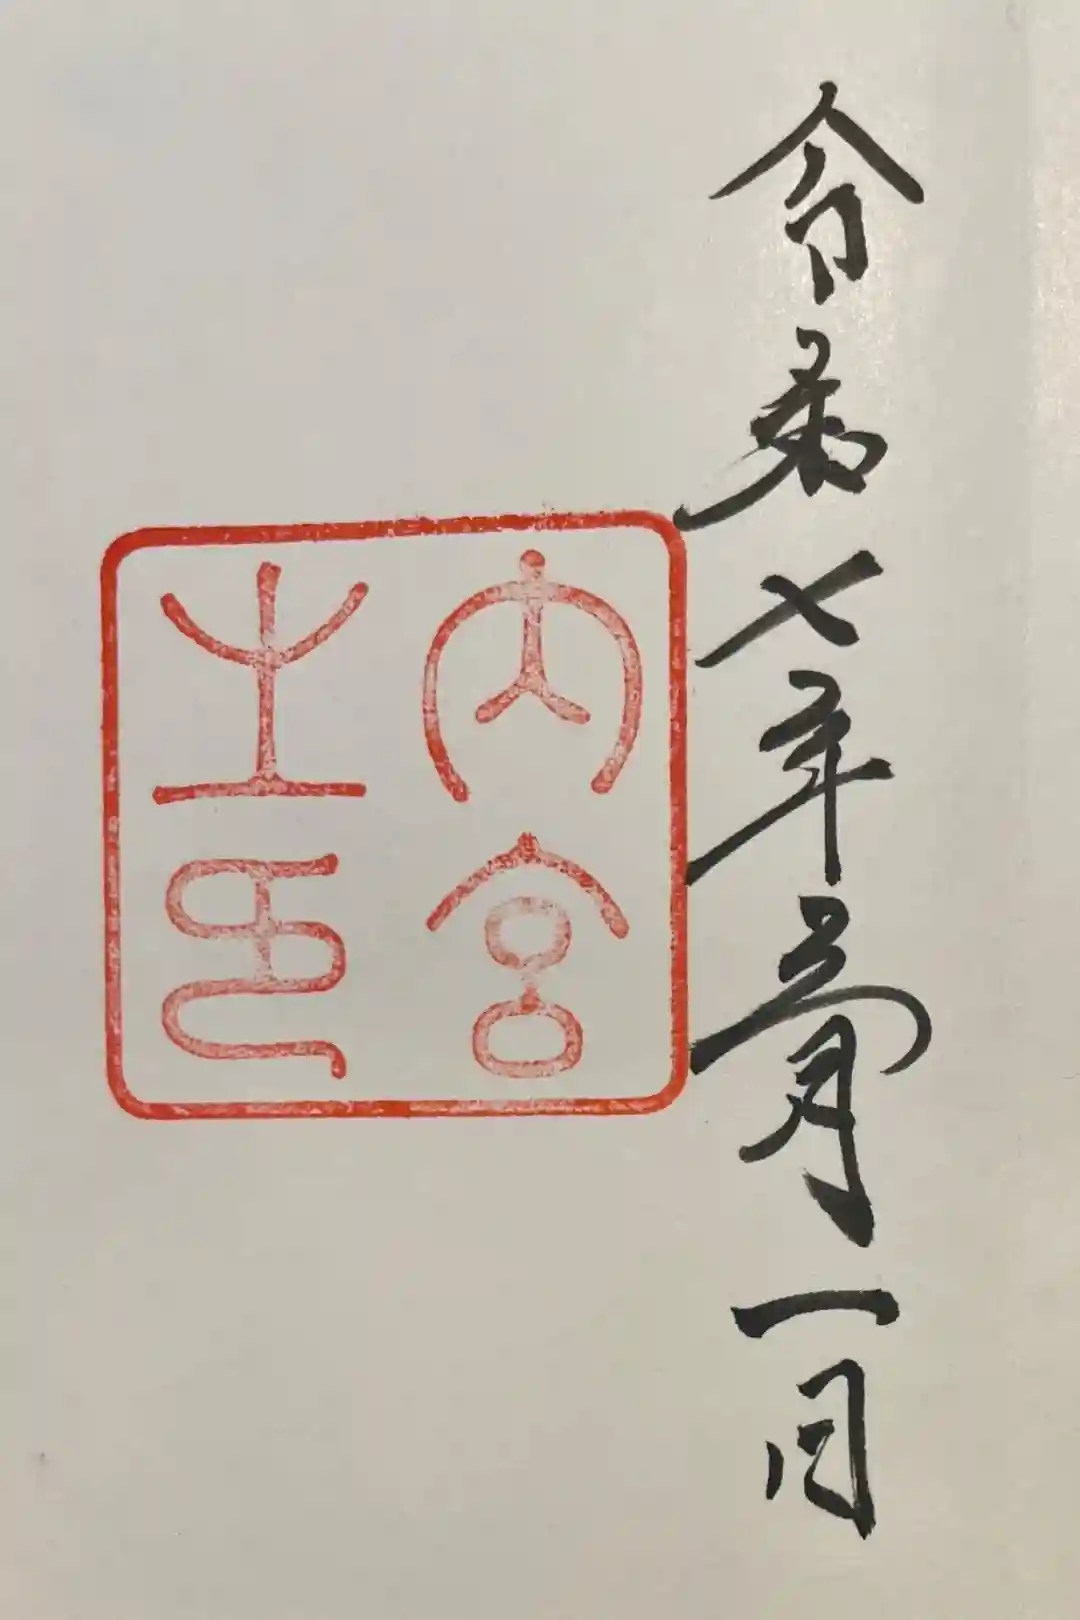 令和七年五月一日
内宮
之印